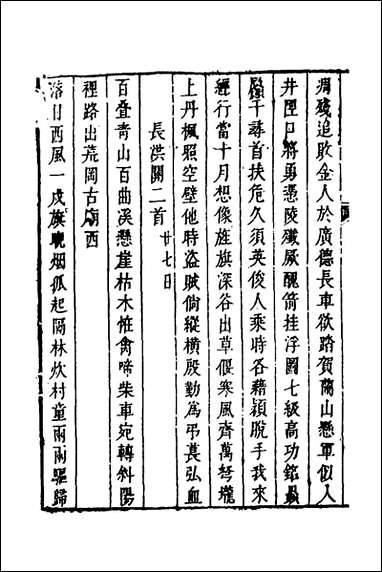 凋殘追敗金人於廣德長車欲踏賀蘭山懸軍似入
井陘口將勇憑陵殲厥醜箭挂浮圖七級高功銘
千尋首扶危久須英俊人乘時各藉穎脫手我來
經行當十月想像旌旗深谷出草偃寒風齊萬弩壠
上丹楓照空壁他時盜賊倘縱橫殷勤爲弔萇弘血
長洪關二首 廿七日
百叠青山百曲溪懸崖枯木怪禽啼柴車宛轉斜陽
裡路出荒岡古廟西
落日西風一戍旗晚烟孤起隔林炊村童兩兩驅歸